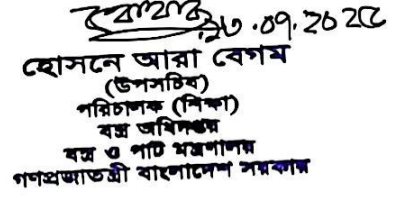 ২৩.০৭.২০২৫
হোসনে আরা বেগম
(উপসচিব)
পরিচালক (শিক্ষা)
বস্ত্র অধিদপ্তর
বস্ত্র ও পাট মন্ত্রণালয়
গণপ্রজাতন্ত্রী বাংলাদেশ সরকার